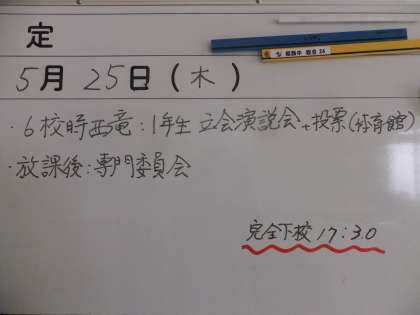 定
5月 25日(木)
・6校時西竜:1年生 立会演説会+投票(体育館)
・放課後:専門委員会
完全下校 17:30